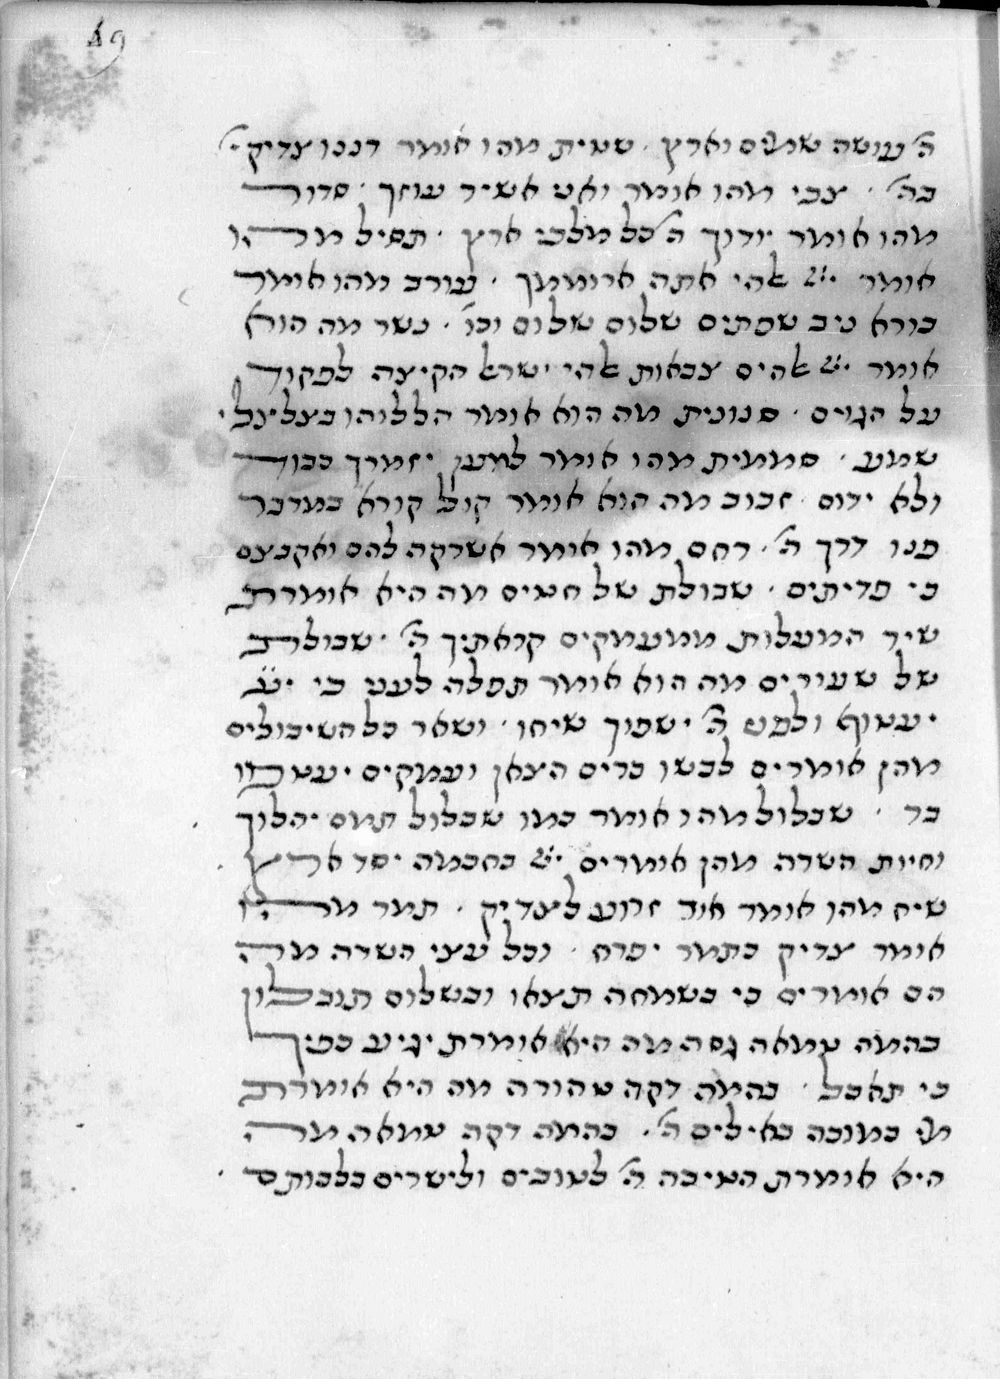 49
ה' עושה שמים וארץ · שממית מהו אומר רננו צדיקי'
בה' · צבי מהו אומר ואני אשיר עוזך · סרור
מהו אומר יודוך ה' כל מלכי ארץ · תסיל מהו
אומר ייי אלהי אתה ארוממך · עורב מהו אומר
בורא ניב שפתים שלום שלום וכו' · נשר מה הוא
אומר ייי אלהים צבאות אלהי ישראל הקיצה לפקוד
על הגוים · סנונית מה הוא אומר הללוהו בצלצלי
שמע · סממית מהו אומר למען יזמרך כבוד
ולא ידום · זבוב מה הוא אומר קול קורא במדבר
פנו דרך ה' · רחם מהו אומר אשרקה להם ואקבצם
כי פדיתים · שבולת של חטים מה היא אומרת
שיר המעלות ממעמקים קראתיך ה' · שבולת
של שעורים מה הוא אומר תפלה לעני כי
יעטוף ולפני ה' ישפוך שיחו · ושאר כל השיבולים
מהן אומרים לבשו כרים הצאן ועמקים יעטפו
בר · שבלול מהו אומר כמו שבלול תמס יהלוך
וחיות השדה מהן אומרים ייי בחכמה יסד ארץ
שיח מהו אומר אור זרוע לצדיק · תמר מהו
אומר צדיק כתמר יפרח · וכל עצי השדה מה
הם אומרים כי בשמחה תצאו ובשלום תובלון
בהמה טמאה גסה מה היא אומרת יגיע כפיך
כי תאכל · בהמה דקה טהורה מה היא אומרת
מי כמוכה באילים ה' · בהמה דקה טמאה מה
היא אומרת הטיבה ה' לטובים ולישרים בלבותם ·